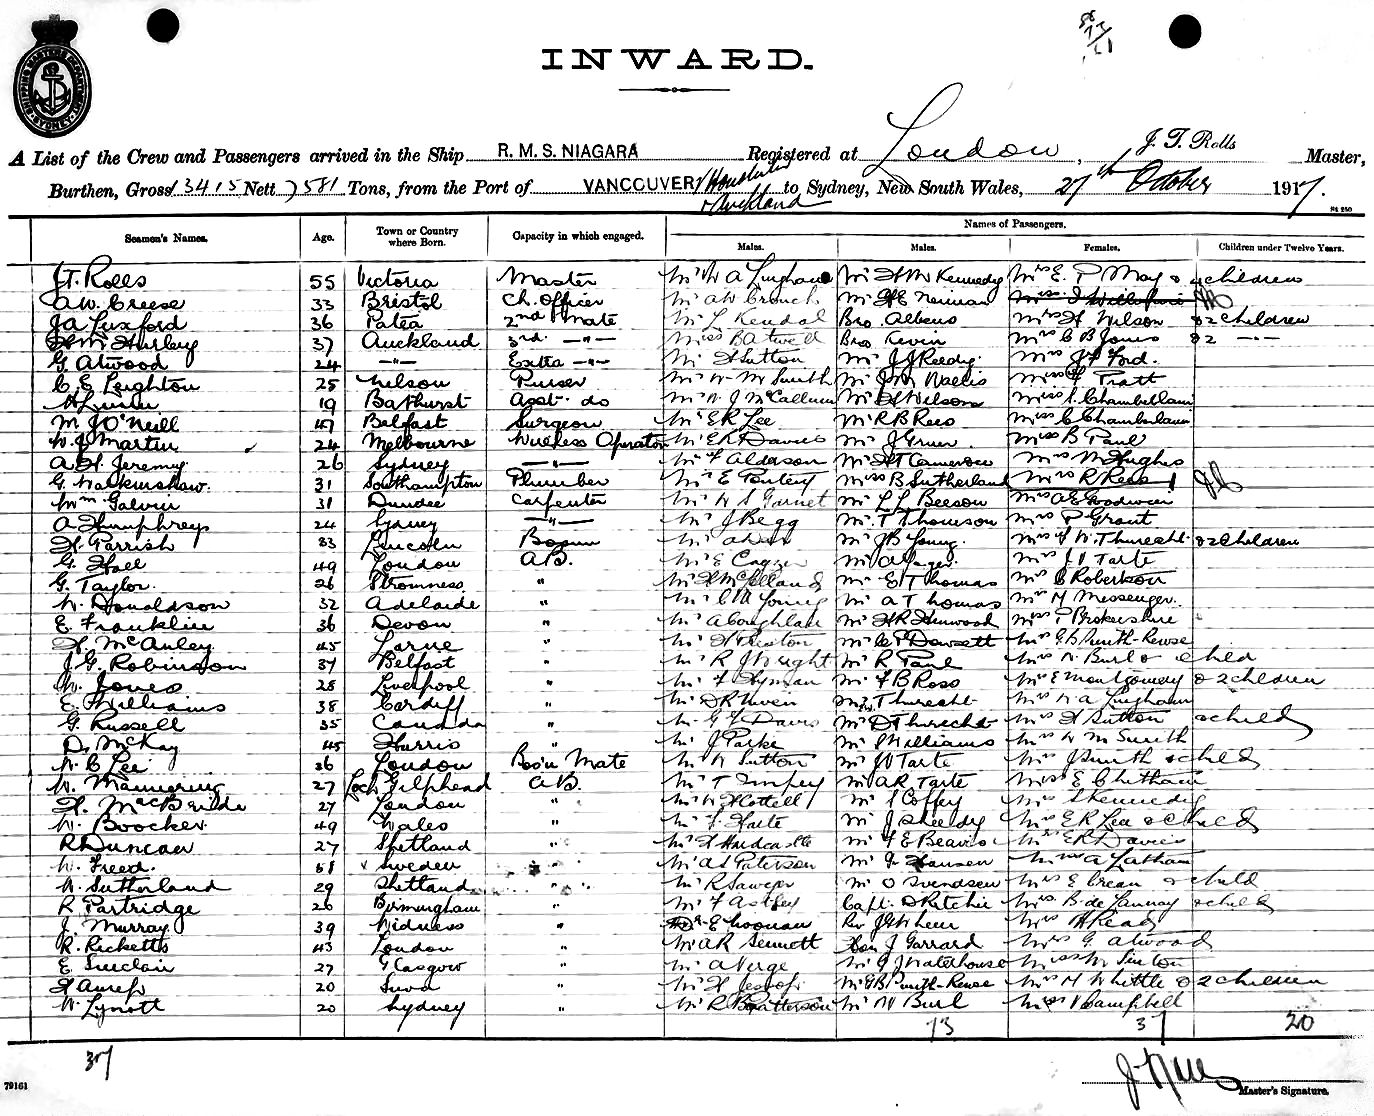 SHIPPING MASTERS DEPARTMENT SYDNEY
INWARD.
A List of the Crew and Passengers arrived in the Ship R. M. S. NIAGARA Registered at London, J. T. Rolls Master,
Burthen, Gross 13415 Nett 7581 Tons, from the Port of VANCOUVER / Honolulu + Auckland to Sydney, New South Wales, 27th October 1917.
Names of Passengers.
Seamen's Names. Age. Town or Country where Born. Capacity in which engaged. Males. Males. Females. Children under Twelve Years.
J.T. Rolls 55 Victoria Master Mr W A Lingham Mr H M Kennedy Mrs E. P May & 4 children
A.W. Creese 33 Bristol Ch. Officer Mr A W Crouch Mr H E Neiman
J A Luxford 36 Patea 2nd Mate Mr L Kendal Bro. Albeus Mrs H Wilson & 2 children
Hurley 37 Auckland 3rd -"- Miss B Atwell Bro. Kevin Mrs C B Jones & 2 -"-
G. Atwood 24 -"- Extra -"- Mr H Sutton Mr J J Reedy Mrs J F Ford.
C E Leighton 25 Nelson Purser Mr W M Smith Mr J M Wallis Miss Pratt
19 Bathurst Asst. do Mr W J McCallum Mr H Wilson Miss L Chamberlain
M J O'Neill 47 Belfast Surgeon Mr E R Lee Mr R B Rees Miss C Chamberlain
W. J. Martin 24 Melbourne Wireless Operator Mr E R Davies Mr J Gruer Miss B Paul
A. H. Jeremy. 26 Sydney -"- Mr F Alderson Mr H T Cameron Miss M Hughes
G. Walkinshaw. 31 Southampton Plumber Mr E Miss B Sutherland Miss R Rees
Wm Galvin 31 Dundee Carpenter Mr W S Garnet Mr L L Beeson Mrs A E Goodwin
A Humphreys 24 Sydney -"- Mr J Begg Mr T Thomson Mrs P Grant
H. Parrish 33 Lincoln Bosun Mr J B Young. Mrs F W. Thurecht & 2 children
G. Hall 49 London A.B. Mr E Mr A Mrs J V Tarte
G. Taylor. 26 Stromness " Mr H McLelland Mr E T Thomas Mrs C Robertson
W. Donaldson 32 Adelaide " Mr C A Young Mr A Thomas Mrs M Messenger.
E. Franklin 36 Devon " Mr A Coughlan Mr H R Henwood Miss P Brokershire
H. McAuley 45 Larne " Mr H Mr C P Dowsett Mrs G. B. Smith-Rewse
J. G. Robinson 37 Belfast " Mr R J Wright Mr R Paul Mrs W. Burl & child
W. Jones 28 Liverpool " Mr F Hyman Mr F B Ross Mrs E Montgomery & 2 children
E. Williams 38 Cardiff " Mr D R Niven T Thurecht Mrs W A Lingham
G. Russell 35 Canada " Mr G L Davis Mr D Thurecht Mrs H Sutton & child
D. McKay 45 Harris " Mr J Parke Mr J Williams Mrs W M Smith
W. C Lee 36 London Bos'n Mate Mr W Sutton Mr J V Tarte Mrs J Smith & child
W. Mannering 27 Loch Gilphead A.B. Mr T Impey Mr A R Tarte Miss E Chitham
H. MacBride 27 London " Mr W H Cottell Mr S Coffey Mrs S Kennedy
W. Boocker 49 Wales " Mr F Mr J Sheedy Mrs E R Lee & child
R Duncan 27 Shetland " Mr H Hardcastle Mr F E Beavis Mrs E R Davies
W. Freed. 51 Sweden " Mr A S Paterson Mr Hansen Mrs A Latham
W. Sutherland 29 Shetland " Mr R Sawyer Mr O Svendsen Mrs E Crean & child
R Partridge 26 Birmingham " Mr F Astley Capt. D Ritchie Mrs B. de Launay & child
J. Murray 39 Widness " Dr E Noonan Rev Mrs H Ready
R. Ricketts 43 London " Mr A R Sennott J Garrard Mrs G. Atwood
E. Sinclair 27 Glasgow " Mr A Verge Mr G J Waterhouse Miss M Sexton
20 Suva " Mr H Jessop Mr G B Smith-Rewse Mrs M Whittle & 2 children
W. Lynott 20 Sydney " Mr R B Patterson Mr W Burl Miss V Campbell
73 37 20
37
Master's Signature.
79161